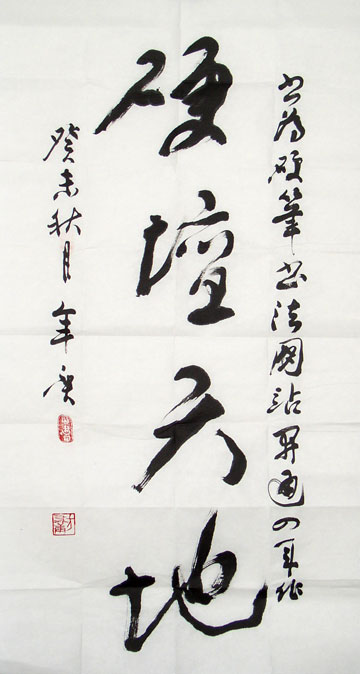 书为硬笔书法网站开通四年作
硬坛天地
癸未秋月年庚